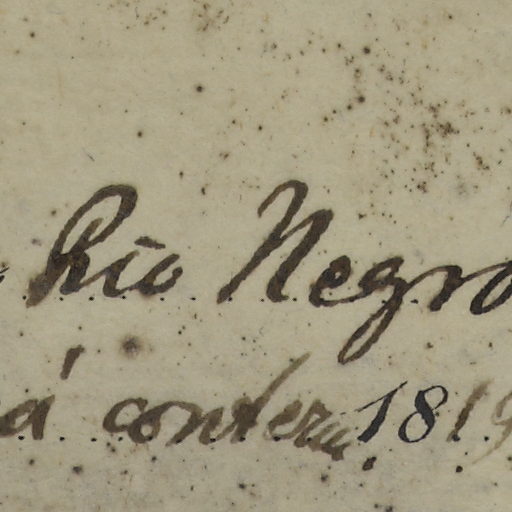 Rio Negro
á conter 1819